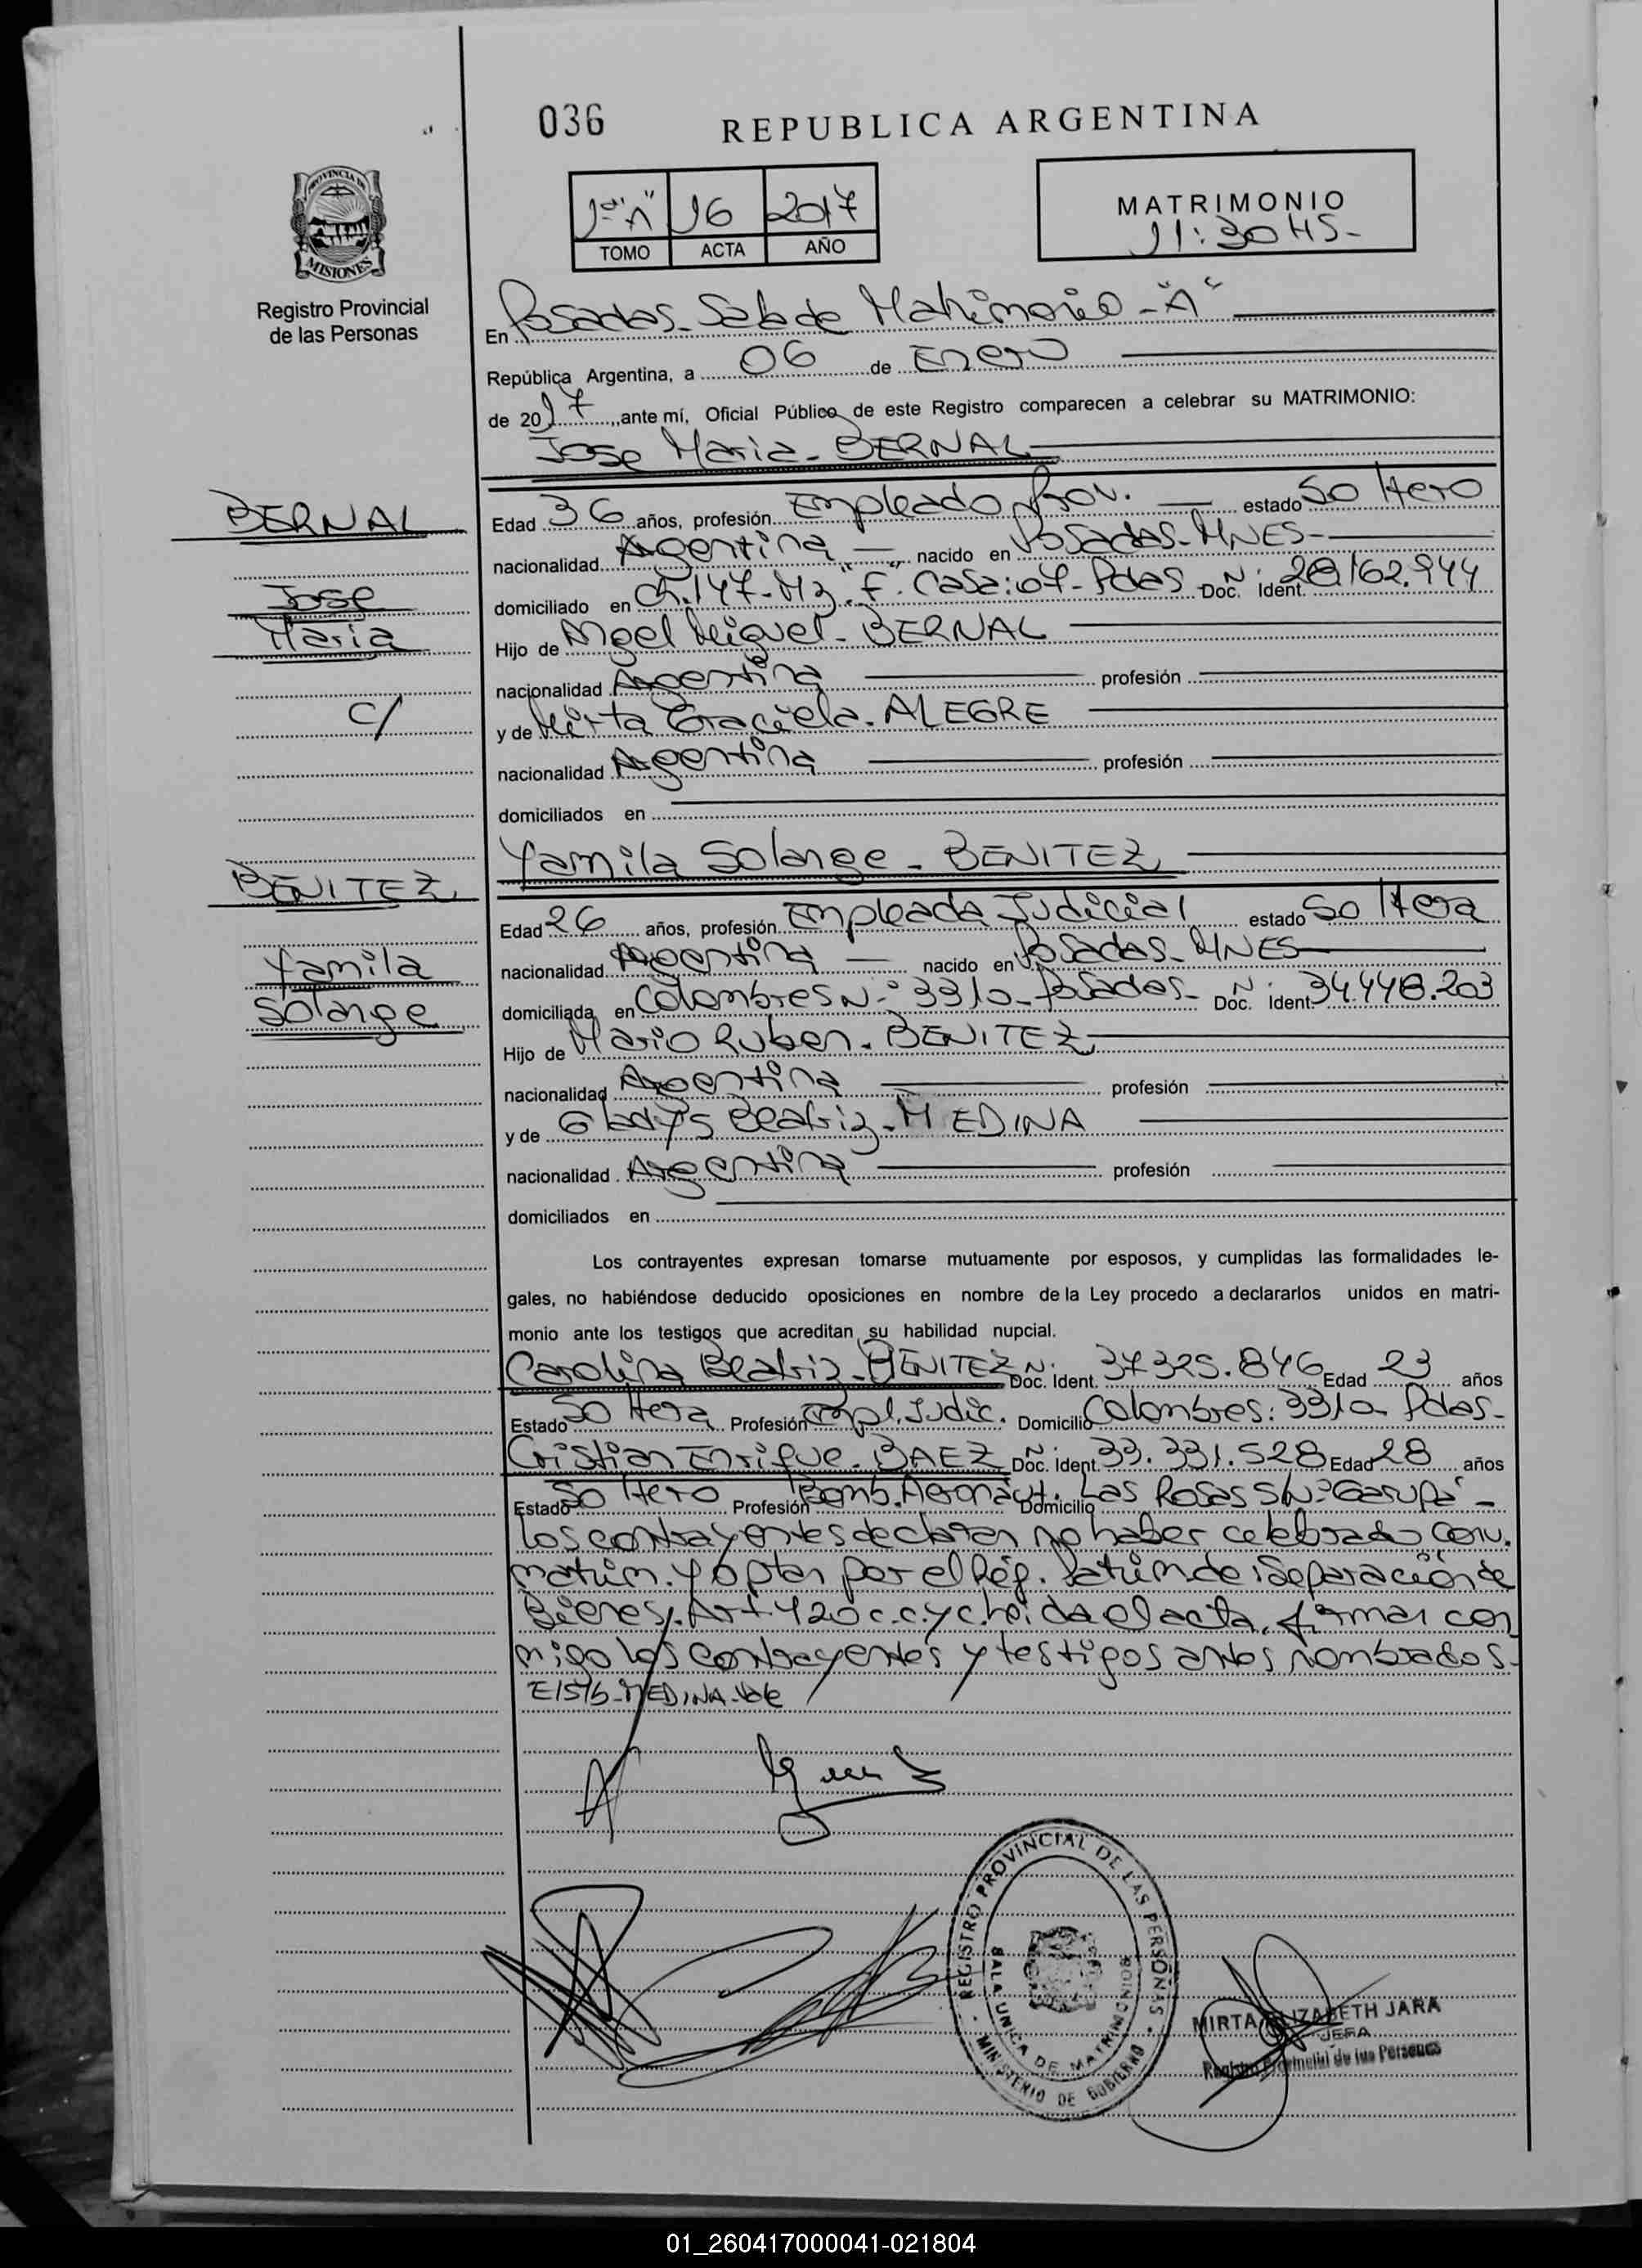 036
REPUBLICA ARGENTINA
PROVINCIA DE
MISIONES
Registro Provincial
de las Personas
1º "A" 16 2017
TOMO ACTA AÑO
MATRIMONIO
11:30 HS-
En Posadas- Sala de Matrimonio - "A"
República Argentina, a 06 de Enero
de 2017, ante mí, Oficial Público de este Registro comparecen a celebrar su MATRIMONIO:
Jose Maria- BERNAL
BERNAL
Edad 36 años, profesión Empleado Prov. estado Soltero
nacionalidad Argentina nacido en Posadas- MNES-
Jose
domiciliado en Ch.147-Mz "F" Casa:07- Pdas Doc. Nº Ident. 28.162.944
Maria
Hijo de Angel Miguel- BERNAL
nacionalidad Argentina profesión
c/
y de Mirta Graciela- ALEGRE
nacionalidad Argentina profesión
domiciliados en
Yamila Solange- BENITEZ
BENITEZ
Edad 26 años, profesión Empleada Judicial estado Soltera
Yamila
nacionalidad Argentina nacido en Posadas- MNES
Solange
domiciliada en Colombres Nº 3310- Posadas- Doc. Nº Ident. 34.448.203
Hijo de Mario Ruben- BENITEZ
nacionalidad Argentina profesión
y de Gladys Beatriz- MEDINA
nacionalidad Argentina profesión
domiciliados en
Los contrayentes expresan tomarse mutuamente por esposos, y cumplidas las formalidades le-
gales, no habiéndose deducido oposiciones en nombre de la Ley procedo a declararlos unidos en matri-
monio ante los testigos que acreditan su habilidad nupcial.
Carolina Beatriz- BENITEZ Doc. Nº Ident. 37.325.846 Edad 23 años
Estado Soltera Profesión Empl. Judic. Domicilio Colombres: 3310- Pdas-
Cristian Enrique- BAEZ Doc. Nº Ident. 33.331.528 Edad 28 años
Estado Soltero Profesión Bomb. Aeronáut. Domicilio Las Rosas S/Nº Garupá-
Los contrayentes declaran no haber celebrado conv.
matrim. y optan por el Rég. Patrim de: Separación de
Bienes. Art. 420 c.c.y c. Leída el acta, firman con
migo los contrayentes y testigos antes nombrados-
E/S/b-MEDINA-Vale
REGISTRO PROVINCIAL DE LAS PERSONAS
SALA UNICA DE MATRIMONIOS
MINISTERIO DE GOBIERNO
MIRTA ELIZABETH JARA
JEFA
Registro Provincial de las Personas
01_260417000041-021804